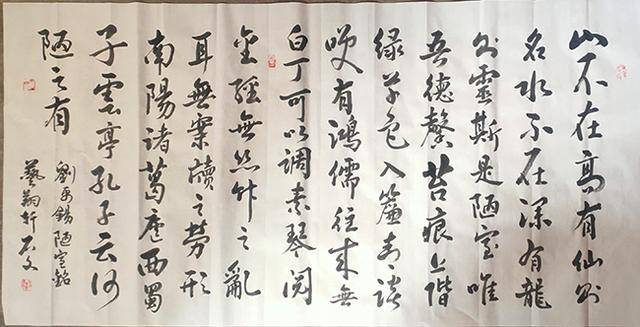 山不在高有仙则
名水不在深有龍
则靈斯是陋室唯
吾德馨苔痕上階
绿草色入簾青談
笑有鴻儒往来無
白丁可以調素琴閱
金經無丝竹之亂
耳無案牘之勞形
南陽諸葛廬西蜀
子雲亭孔子云何
陋之有
劉禹錫陋室銘
藝翔軒石文